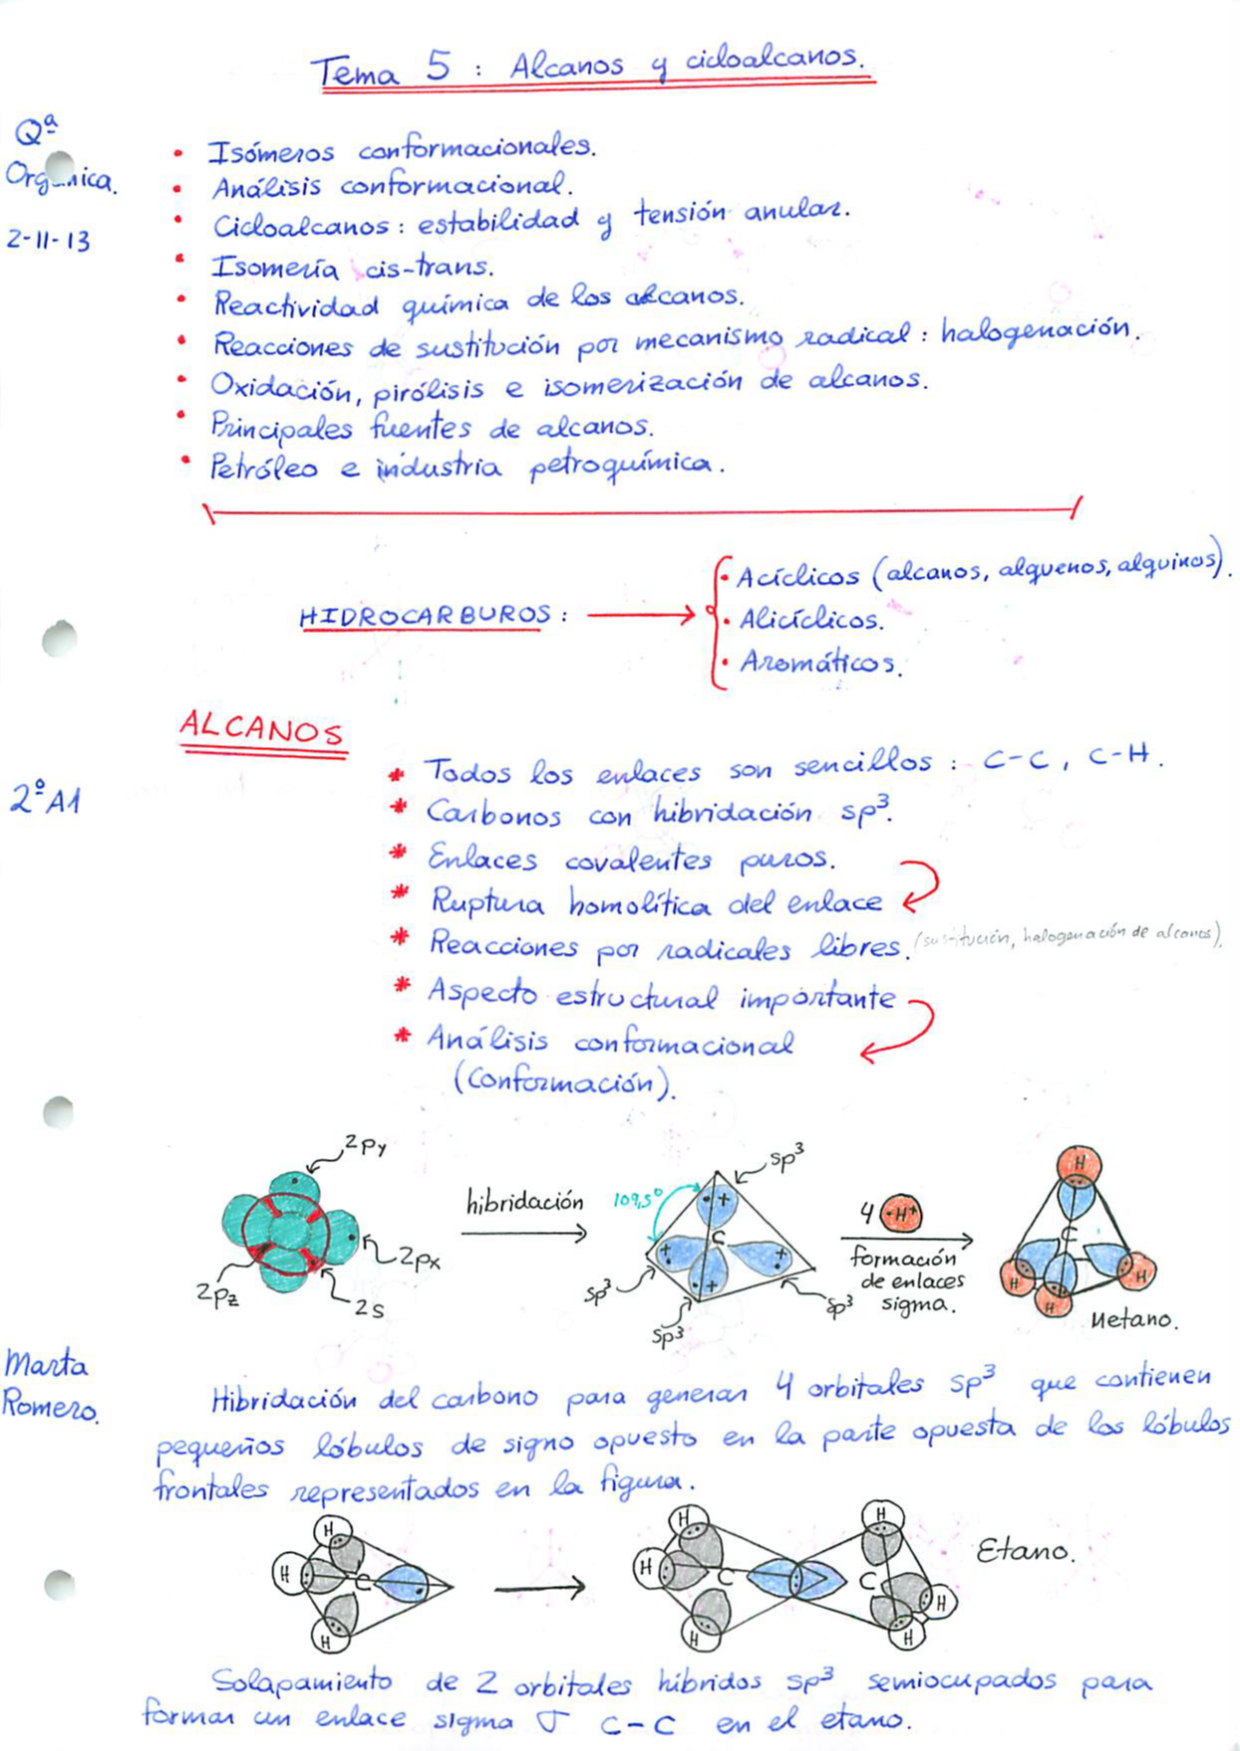 Tema 5 : Alcanos y cicloalcanos.
Qª
Orgánica.
2-11-13
• Isómeros conformacionales.
• Análisis conformacional.
• Cicloalcanos : estabilidad y tensión anular.
• Isomería cis-trans.
• Reactividad química de los alcanos.
• Reacciones de sustitución por mecanismo radical : halogenación.
• Oxidación, pirólisis e isomerización de alcanos.
• Principales fuentes de alcanos.
• Petróleo e industria petroquímica.
HIDROCARBUROS :
• Acíclicos (alcanos, alquenos, alquinos).
• Alicíclicos.
• Aromáticos.
ALCANOS
2º A1
* Todos los enlaces son sencillos : C-C, C-H.
* Carbonos con hibridación sp³.
* Enlaces covalentes puros.
* Ruptura homolítica del enlace
* Reacciones por radicales libres. (sustitución, halogenación de alcanos).
* Aspecto estructural importante
* Análisis conformacional
(Conformación).
2py
2px
2pz
2s
hibridación
109,5º
sp³
C
sp³
sp³
sp³
+
+
+
+
4 ·H+
formación
de enlaces
sigma.
H
C
H
H
H
Metano.
Marta
Romero.
Hibridación del carbono para generar 4 orbitales sp³ que contienen
pequeños lóbulos de signo opuesto en la parte opuesta de los lóbulos
frontales representados en la figura.
H
H
C
H
H
H
C
H
H
C
H
H
Etano.
Solapamiento de 2 orbitales híbridos sp³ semiocupados para
formar un enlace sigma σ C-C en el etano.